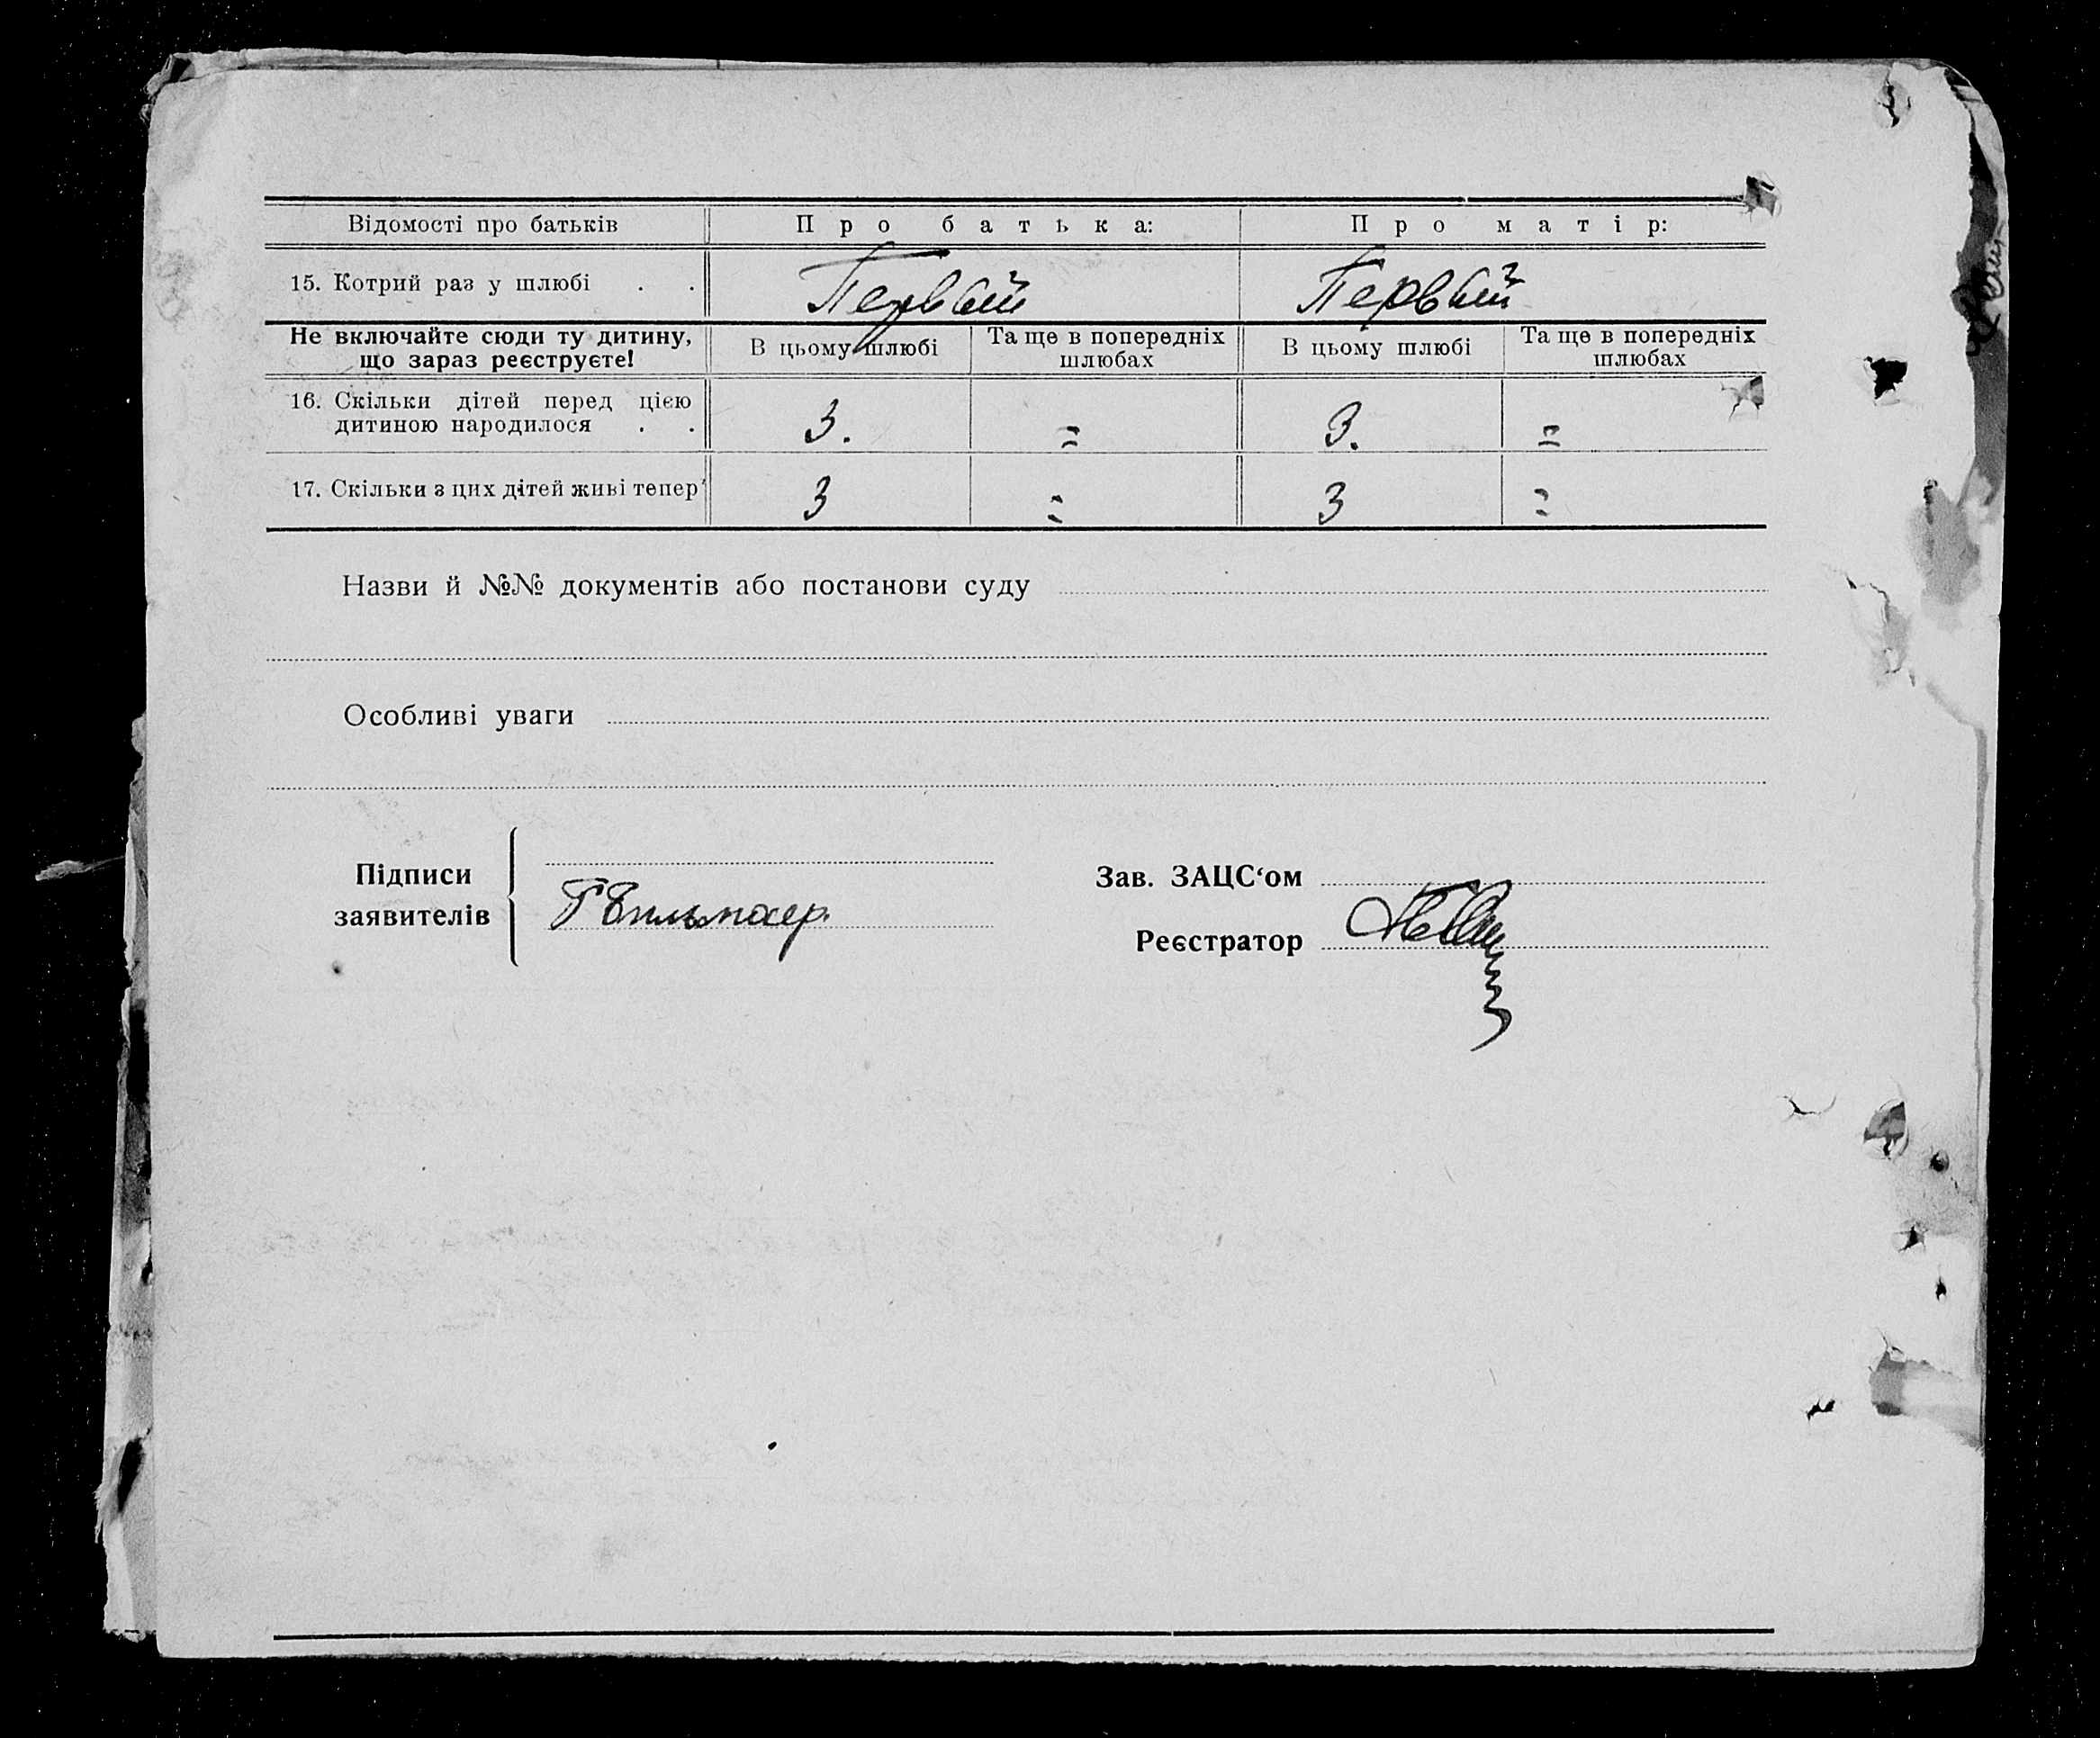 Відомості про батьків Про батька: Про матір:
15. Котрий раз у шлюбі . . Первый Первый
Не включайте сюди ту дитину, що зараз реєструєте! В цьому шлюбі Та ще в попередніх шлюбах В цьому шлюбі Та ще в попередніх шлюбах
16. Скільки дітей перед цією
дитиною народилося . . 3. = 3. =
17. Скільки з цих дітей живі тепер 3 = 3 =
Назви й №№ документів або постанови суду
Особливі уваги
Підписи
заявителів
Зав. ЗАЦС‘ом
Реєстратор